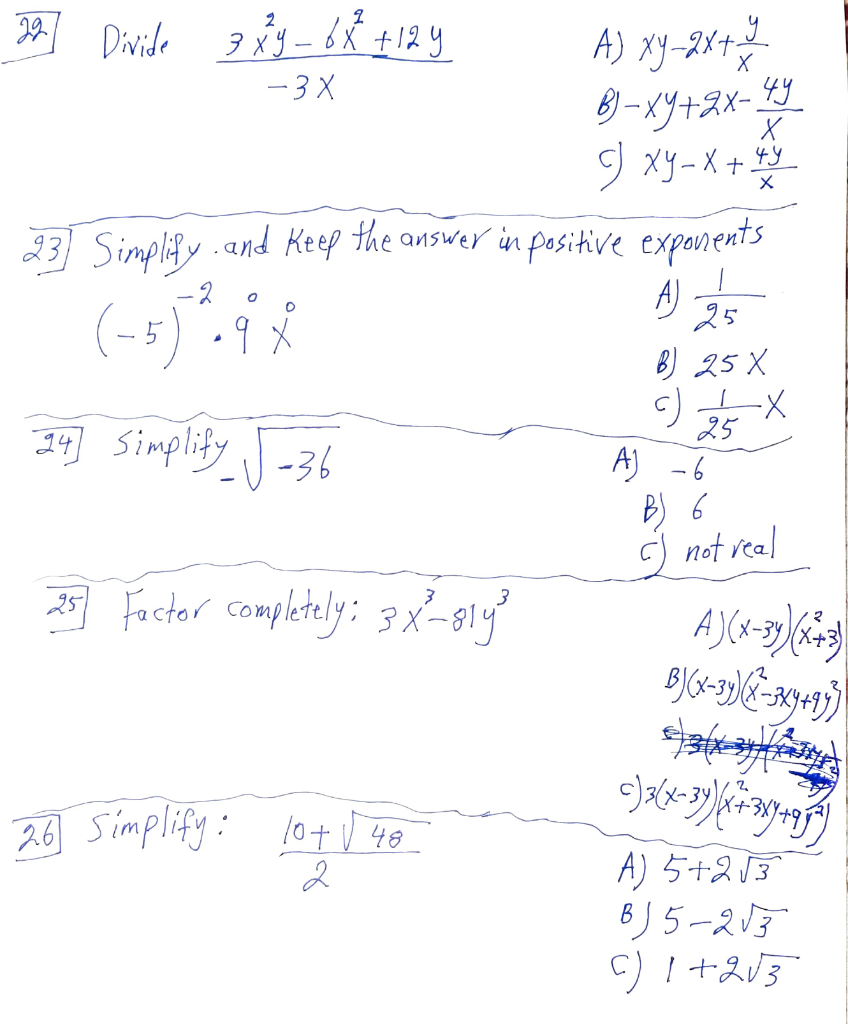 22] Divide (3x²y - 6x² + 12y)/(-3x)
A) xy-2x+y/x
B) -xy+2x-4y/x
C) xy-x+4y/x
23] Simplify. and Keep the answer in positive exponents
(-5)⁻² . 9⁰ x⁰
A) 1/25
B) 25x
C) 1/25 x
24] Simplify -√-36
A) -6
B) 6
C) not real
25] Factor completely: 3x³-81y³
A) (x-3y)(x²+3)
B) (x-3y)(x²-3xy+9y²)
C) 3(x-3y)(x²+3xy+9y²)
26] Simplify: (10+√48)/2
A) 5+2√3
B) 5-2√3
C) 1+2√3